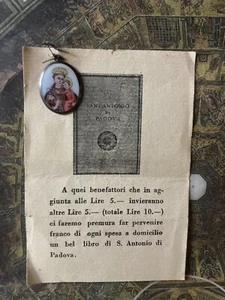 SANT'ANTONIO
DI
PADOVA
A quei benefattori che in ag-
giunta alle Lire 5.— invieranno
altre Lire 5.— (totale Lire 10.—)
ci faremo premura far pervenire
franco di ogni spesa a domicilio
un bel libro di S. Antonio di
Padova.